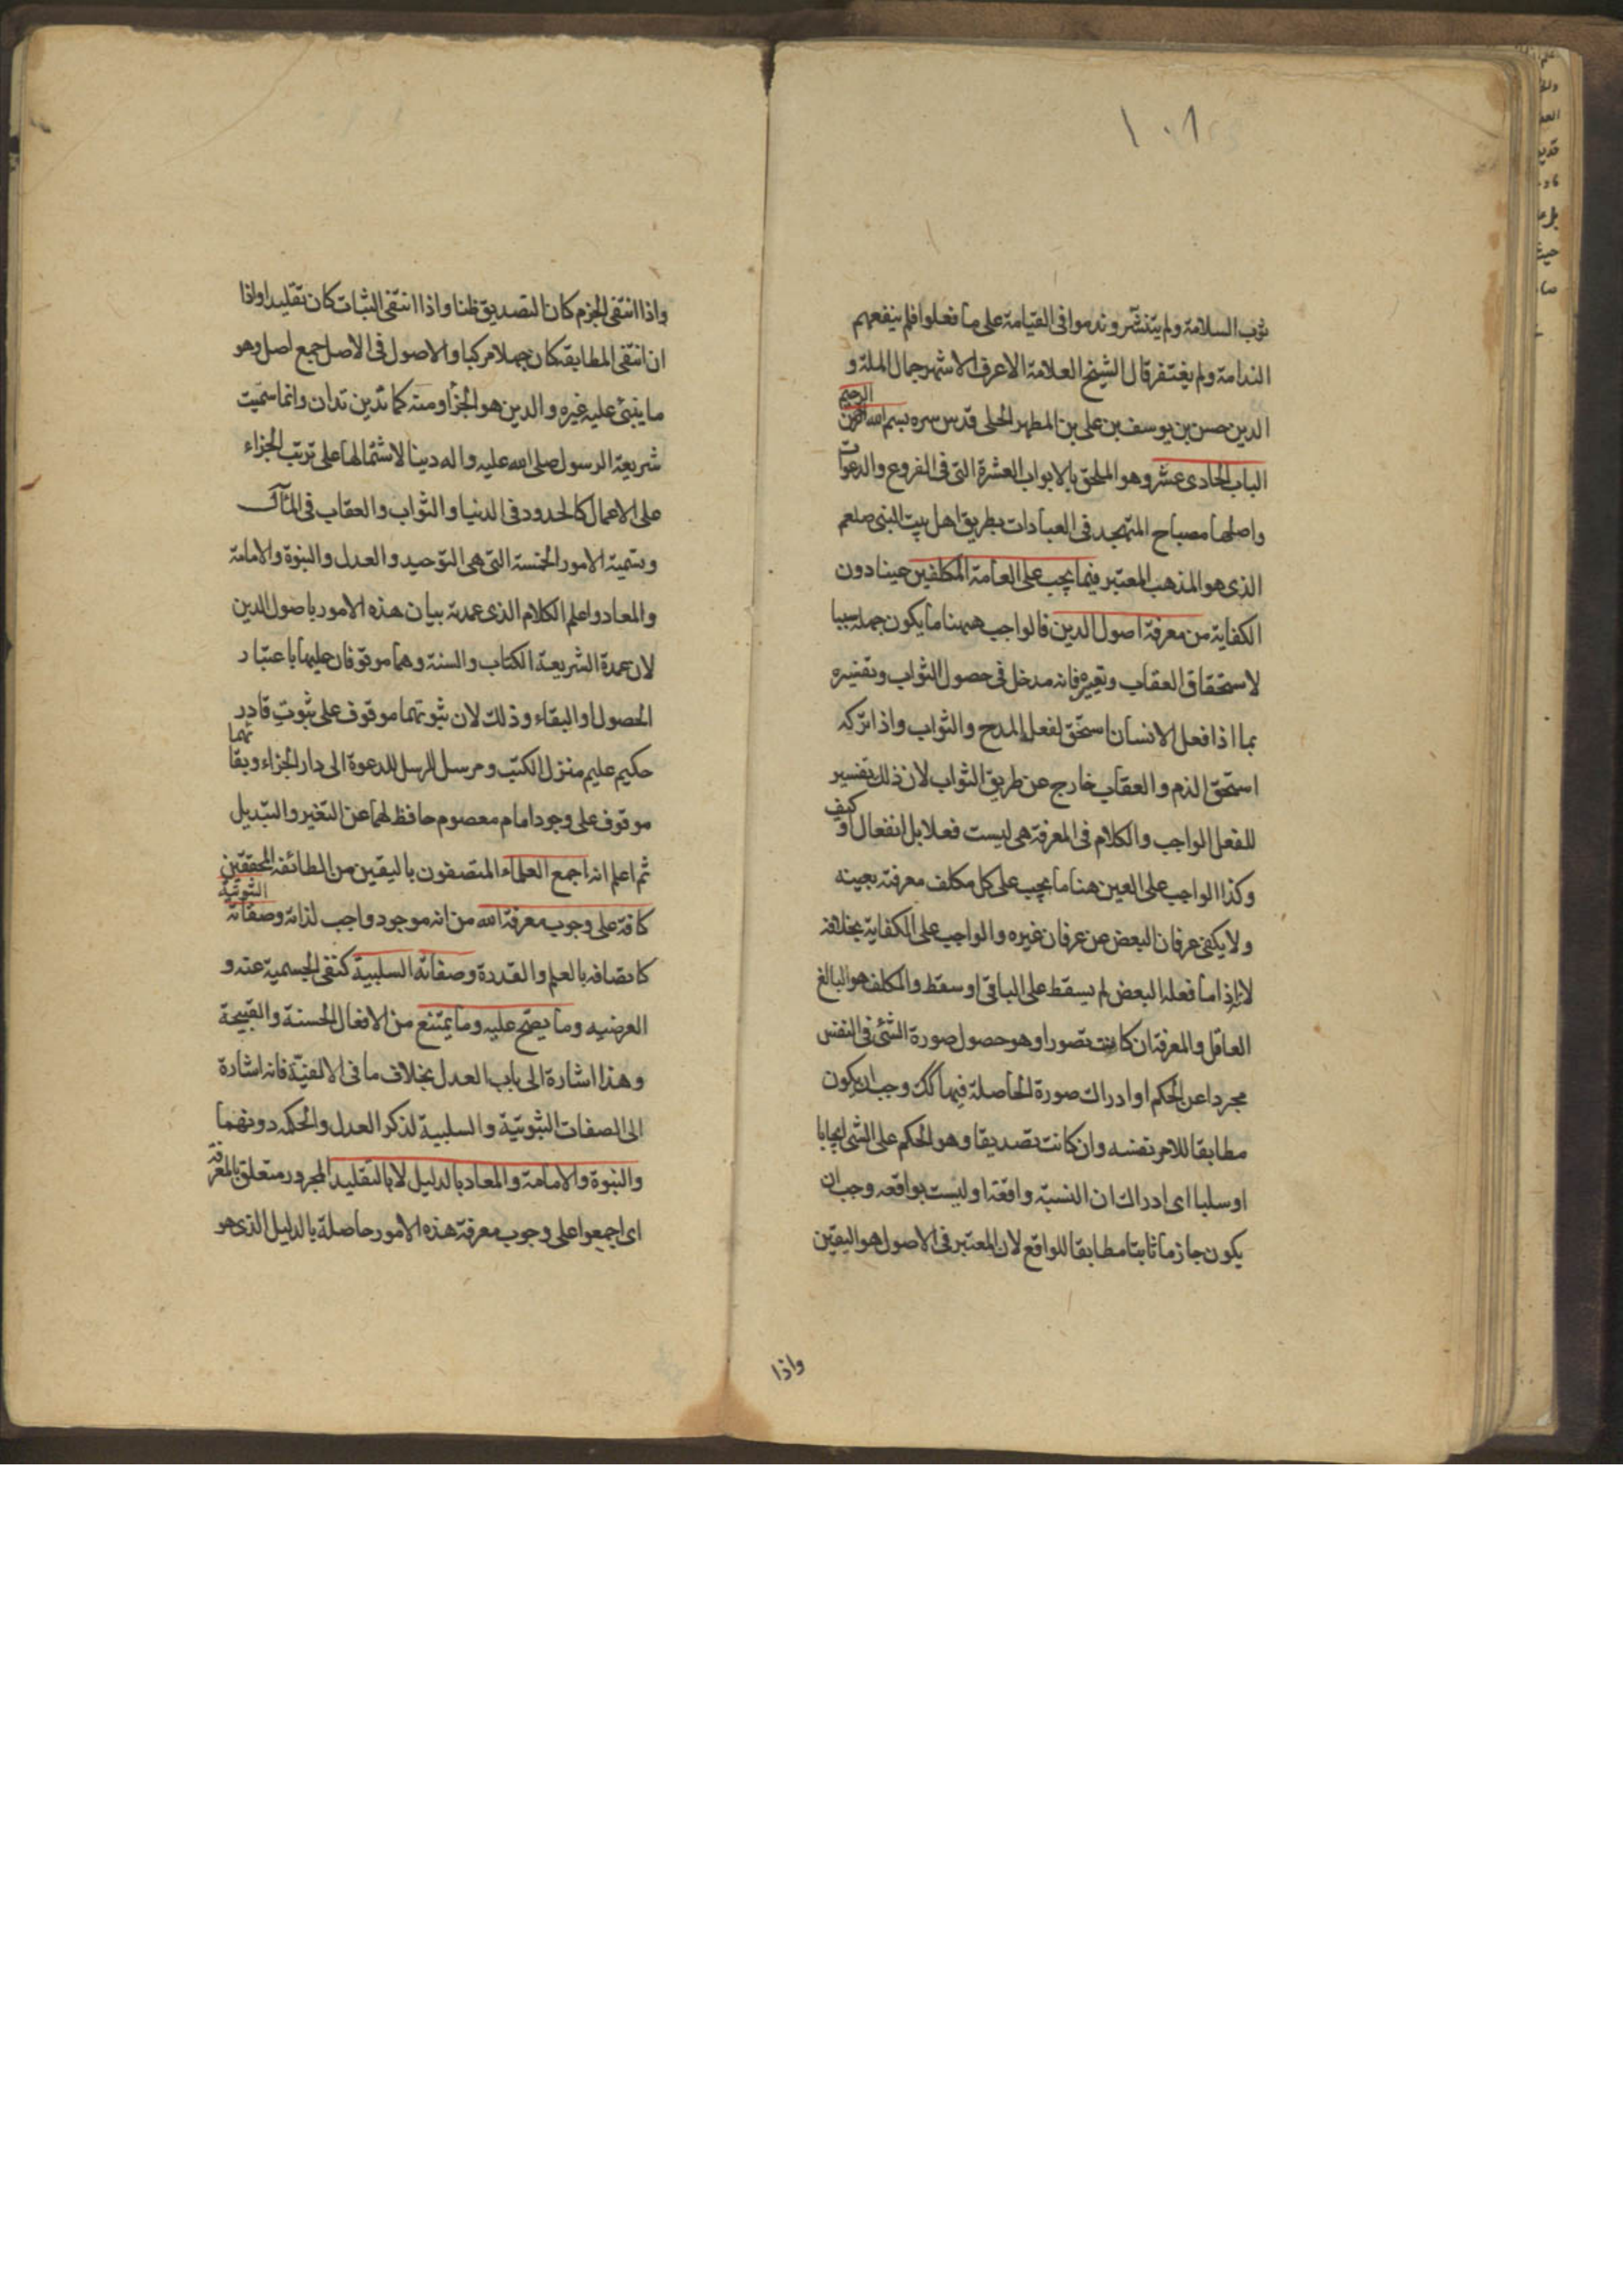 ١٠٨
ثوب السلامة ولم يتدثر وندموا فى القيامة على ما فعلوا فلم ينفعهم
الندامة ولم يغتفر قال الشيخ العلامة الاعرف الاشهر جمال الملة و
الدين حسن بن يوسف بن على بن المطهر الحلى قدس سره بسم الله الرحمن الرحيم
الباب الحادى عشر وهو الملحق بالابواب العشرة التى فى الفروع والدعوات
واصلها مصباح المتهجد فى العبادات بطريق اهل بيت النبى صلعم
الذى هو المذهب المعتبر فيما يجب على العامة المكلفين عينا دون
الكفاية من معرفة اصول الدين فالواجب ههنا ما يكون جهله سببا
لاستحقاق العقاب وتغييره فانه مدخل فى حصول الثواب وتفسيره
بما اذا فعل الانسان استحق لفعله المدح والثواب واذا تركه
استحق الذم والعقاب خارج عن طريق الثواب لان ذلك تفسير
للفعل الواجب والكلام فى المعرفة هى ليست فعلا بل انفعال او كيف
وكذا الواجب على العين هنا ما يجب على كل مكلف معرفته بعينه
ولا يكفى عرفان البعض عن عرفان غيره والواجب على الكفاية بخلافه
لانه اذا ما فعله البعض لم يسقط على الباقى او سقط والمكلف هو البالغ
العاقل والمعرفة ان كانت تصورا وهو حصول صورة الشئ فى النفس
مجردا عن الحكم او ادراك صورة الحاصلة فيها كك وجب ان يكون
مطابقا للامر نفسه وان كانت تصديقا وهو الحكم على الشى ايجابا
او سلبا اى ادراك ان النسبة واقعة او ليست بواقعه وجب ان
يكون جازما ثابتا مطابقا للواقع لان المعتبر فى الاصول هو اليقين
واذا
واذا انتفى الجزم كان التصديق ظنا واذا انتفى الثبات كان تقليدا واذا
ان انتفى المطابقة كان جهلا مركبا والاصول فى الاصل جمع اصل وهو
ما يبنى عليه غيره والدين هو الجزأ ومنه كما تدين تدان وانما سميت
شريعة الرسول صلى الله عليه واله دينا لاشتمالها على ترتب الجزاء
على الاعمال كالحدود فى الدنيا والثواب والعقاب فى المآل
وتسمية الامور الخمسة التى هى التوحيد والعدل والنبوة والامامة
والمعاد واعلم الكلام الذى عمدته بيان هذه الامور باصول الدين
لان عمدة الشريعة الكتاب والسنة وهما موقوفان عليها باعتبار
الحصول او البقاء وذلك لان ثبوتهما موقوف على ثبوت قادر
حكيم عليم منزل الكتب ومرسل الرسل للدعوة الى دار الجزاء وبقائهما
موقوف على وجود امام معصوم حافظ لهما عن التغير والتبديل
ثم اعلم انه اجمع العلماء المتصفون باليقين من الطائفة المحققين
كافة على وجوب معرفة الله من انه موجود واجب لذاته وصفاته الثبوتية
كاتصافه بالعلم والقدرة وصفاته السلبية كنفى الجسمية عنه و
العرضيه وما يصح عليه وما يمتنع من الافعال الحسنة والقبيحة
وهذا اشارة الى باب العدل بخلاف ما فى الالفية فانه اشارة
الى الصفات الثبوتية والسلبية لذكر العدل والحكمه دونهما
والنبوة والامامة والمعاد بالدليل لا بالتقليد المجرور متعلق بالمعرفة
اى اجمعوا على وجوب معرفة هذه الامور حاصلة بالدليل الذى هو